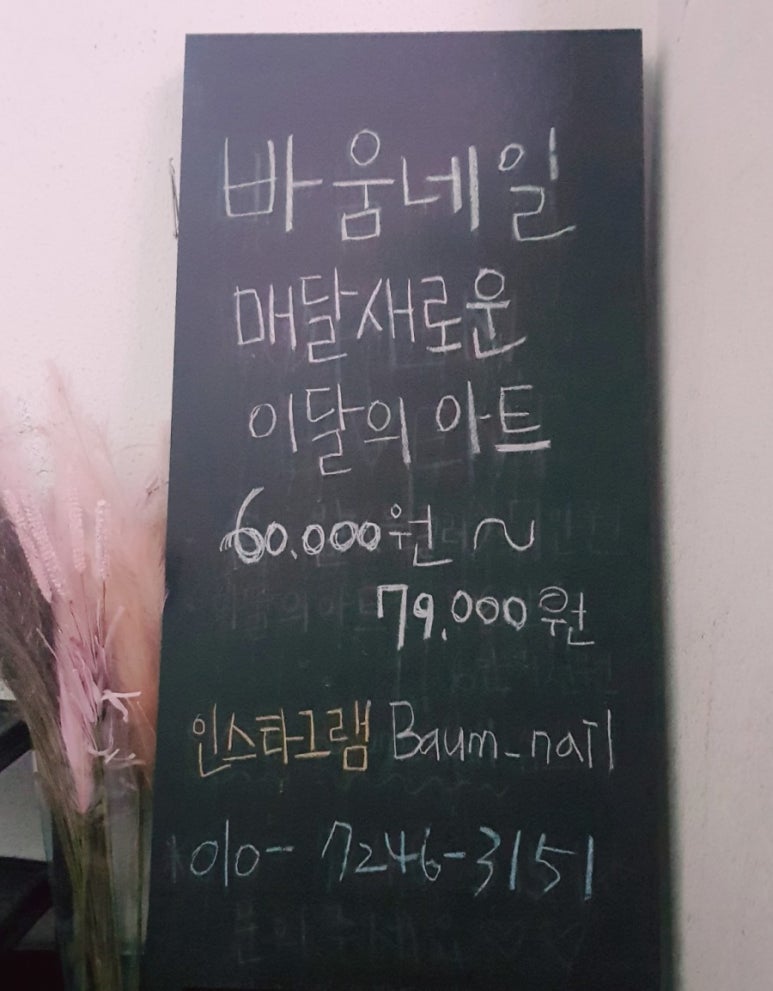 바움네일
매달새로운
이달의 아트
60.000원 ~
79.000원
인스타그램 Baum_nail
010- 7246-3151